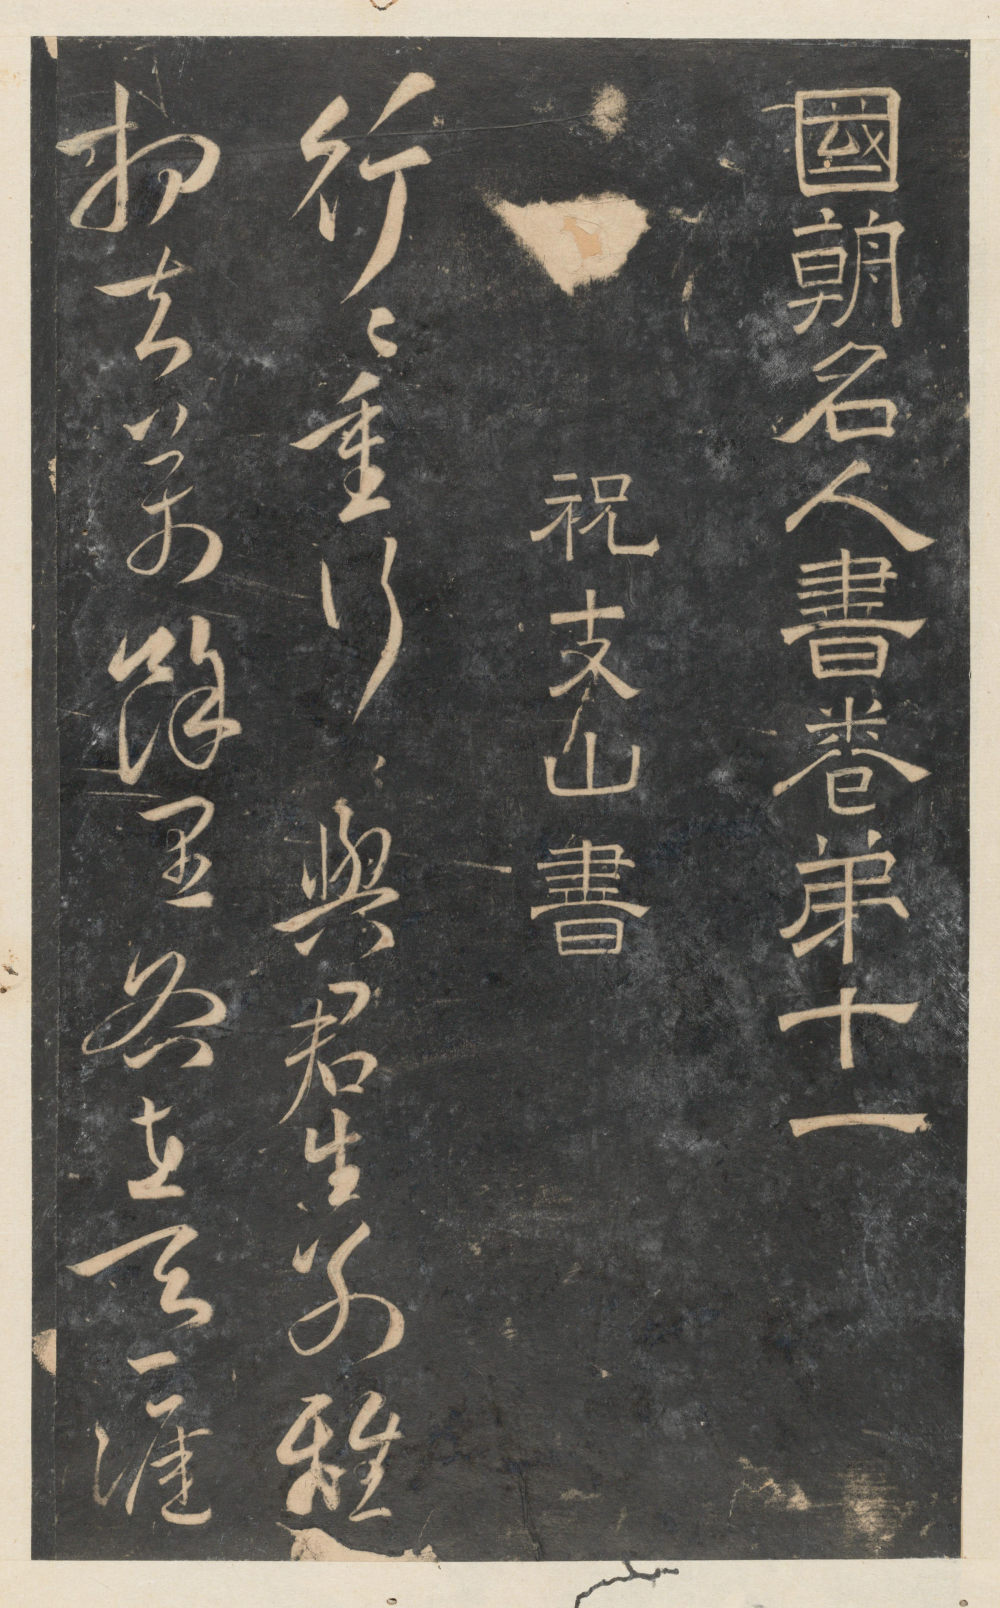 國朝名人書卷弟十一
祝支山書
行〻重行〻與君生別離
相去萬餘里各在天一涯